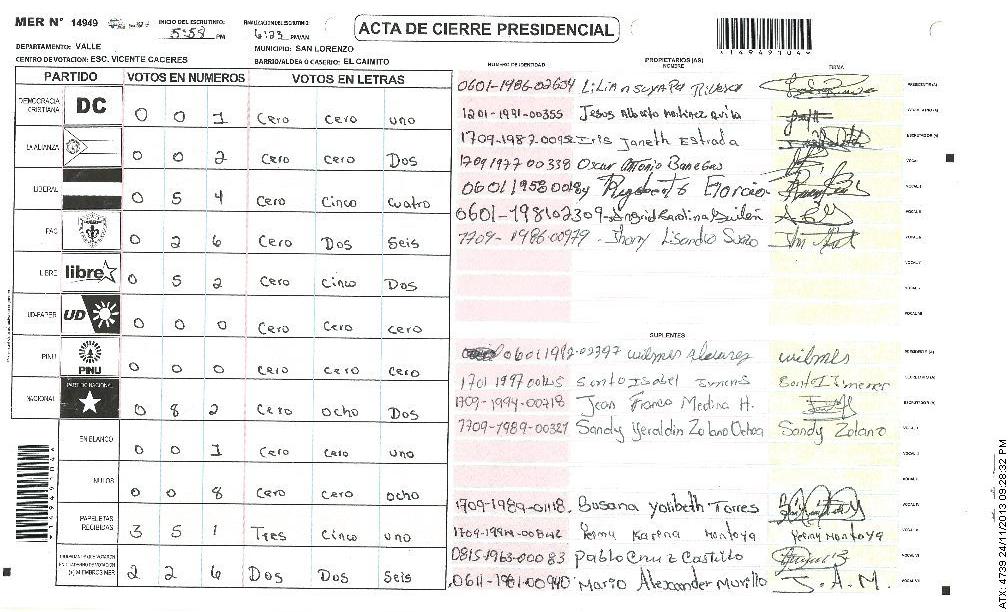 MER N° 14949
INICIO DEL ESCRUTINIO: 5:59 PM
FINALIZACION DEL ESCRUTINIO: 6:23 PM/AM
ACTA DE CIERRE PRESIDENCIAL
149491049
DEPARTAMENTO: VALLE
MUNICIPIO: SAN LORENZO
CENTRO DE VOTACION: ESC. VICENTE CACERES
BARRIO/ALDEA O CASERIO: EL CAIMITO
PARTIDO VOTOS EN NUMEROS VOTOS EN LETRAS
NUMERO DE IDENTIDAD PROPIETARIOS (AS) NOMBRE FIRMA
DEMOCRACIA CRISTIANA DC 0 0 1 Cero Cero uno
LA ALIANZA 0 0 2 Cero Cero Dos
LIBERAL 0 5 4 Cero Cinco Cuatro
PAC 0 2 6 Cero Dos Seis
LIBRE libre 0 5 2 Cero Cinco Dos
UD-FAPER UD 0 0 0 Cero Cero cero
PINU PINU 0 0 0 Cero Cero Cero
NACIONAL PARTIDO NACIONAL 0 8 2 Cero ocho Dos
EN BLANCO 0 0 1 Cero Cero uno
NULOS 0 0 8 Cero Cero ocho
PAPELETAS RECIBIDAS 3 5 1 Tres Cinco uno
2 2 6 Dos Dos Seis
0601-1986-02604 Lilian PRESIDENTE (A)
1201-1991-00355 Jesus Alberto Martinez Avila
1709-1987- Iris Janeth Estrada ESCRUTADOR (A)
1709 1977 00338 Oscar Antonio Banegas
0601 1958
0601-1981-02309 Ingrid Carolina
-1986-00979 Jhony Lisandro
SUPLENTES
0601 1992-02397 wilmer wilmer
1701 1997 Santo Isabel
1709-1994-00718 Jean Franco Medina H. ESCRUTADOR (A)
-1989-00321 Sandy Yeraldin Zolano Ochoa Sandy Zolano
1709-1989-01118 Susana Yolibeth Torres
Karena Montoya
0815 1963-000 83 Pablo Cruz Castillo
0611-1981-00940 Mario Alexander Murillo J. A. M.
149491049
ATX: 4739 24/11/2013 09:28:32 PM